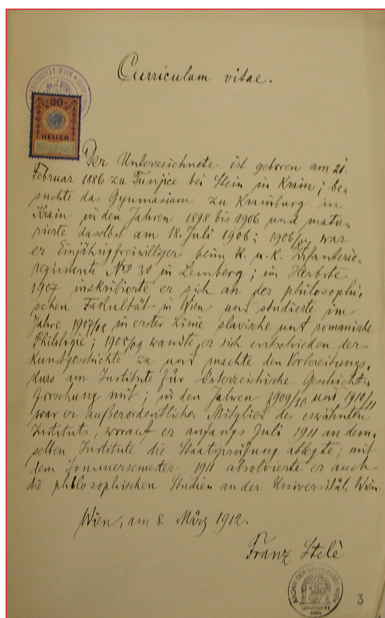 Curriculum vitae.
30
HELLER
Der Unterzeichnete ist geboren am 21.
Februar 1886 zu Tunjice bei Stein in Krain; be-
suchte das Gymnasium zu Krainburg in
Krain in den Jahren 1898 bis 1906 und matu-
rierte daselbst am 18. Juli 1906; 1906/07 war
er Einjährigfreiwilliger beim k. u. k. Infanterie-
regimente No 30 in Lemberg; im Herbste
1907 inskribierte er sich an der philosophi-
schen Fakultät in Wien und studierte im
Jahre 1907/08 in erster Linie slavische und romanische
Philologie; 1908/09 wandte er sich entschieden der
Kunstgeschichte zu und machte den Vorbereitungs-
kurs am Institute für österreichische Geschichts-
forschung mit; in den Jahren 1909/10 und 1910/11
war er außerordentliches Mitglied des erwähnten
Instituts, worauf er anfangs Juli 1911 an dem-
selben Institute die Staatsprüfung ablegte; mit
dem Sommersemester 1911 absolvierte er auch
die philosophischen Studien an der Universität Wien.
Wien, am 8. März 1912.
Franz Stelè
ARCHIV DER UNIVERSITÄT WIEN
3